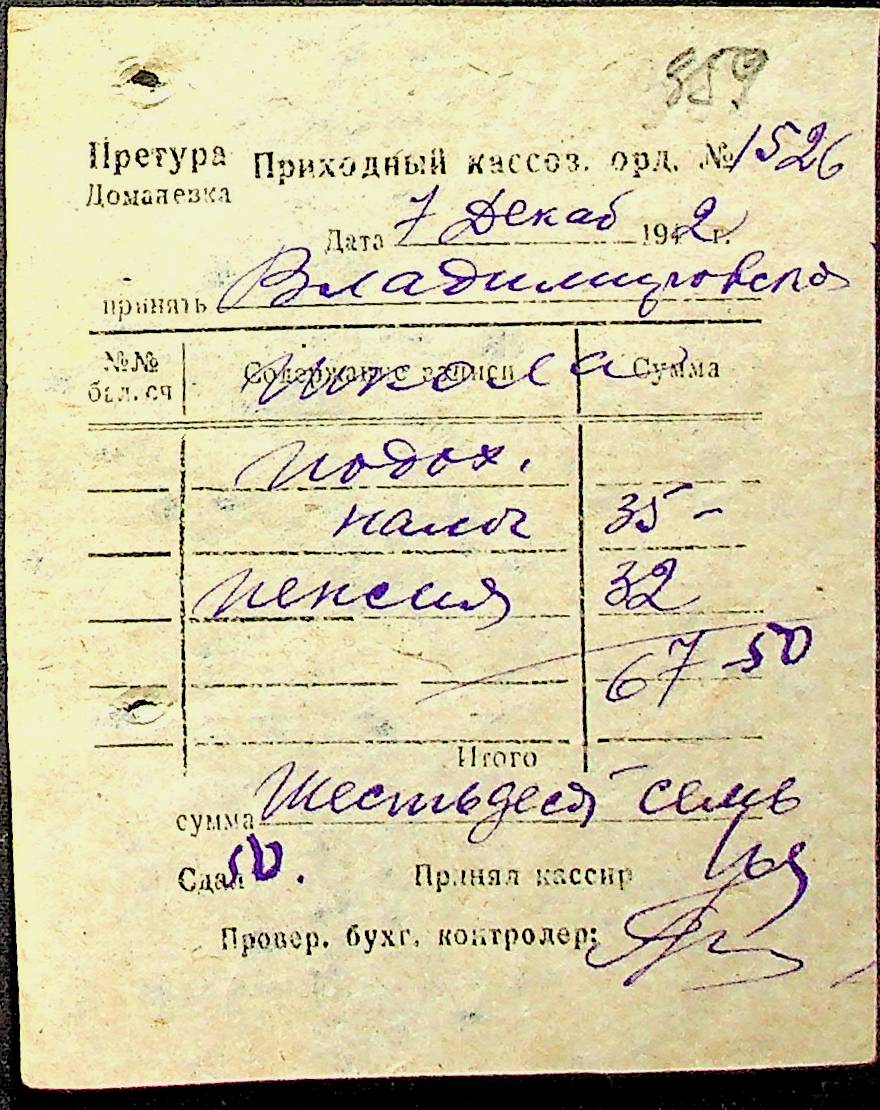 359
Претура Приходный кассов. орд. № 1526
Доманевка
Дата 7 Декаб 1942 г.
принять Владимировская
№№ бал. сч Содержание записи Сумма
школа
подох.
налог 35 -
пенсия 32
67 50
Итого
сумма Шестьдеся семь
Сдал 50.
Принял кассир
Провер. бухг. контролер: